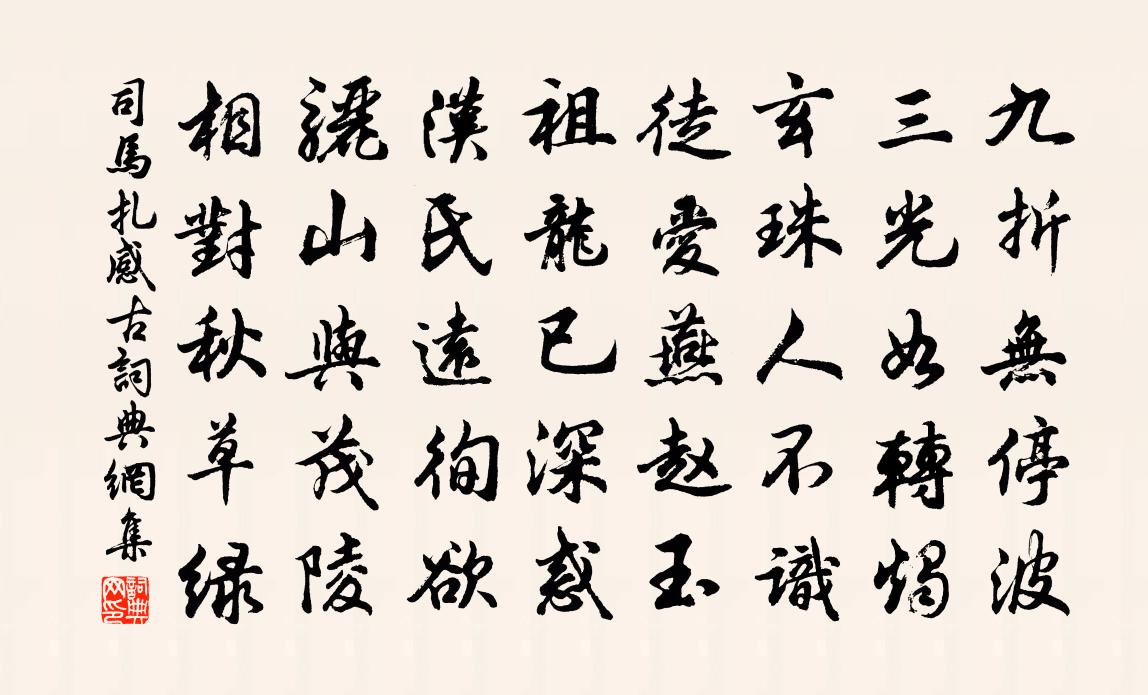 九折無停波
三光如轉燭
玄珠人不識
徒愛燕赵玉
祖龍已深惑
漢氏遠徇欲
驪山與茂陵
相對秋草绿
司馬扎感古詞典網集
詞典网印